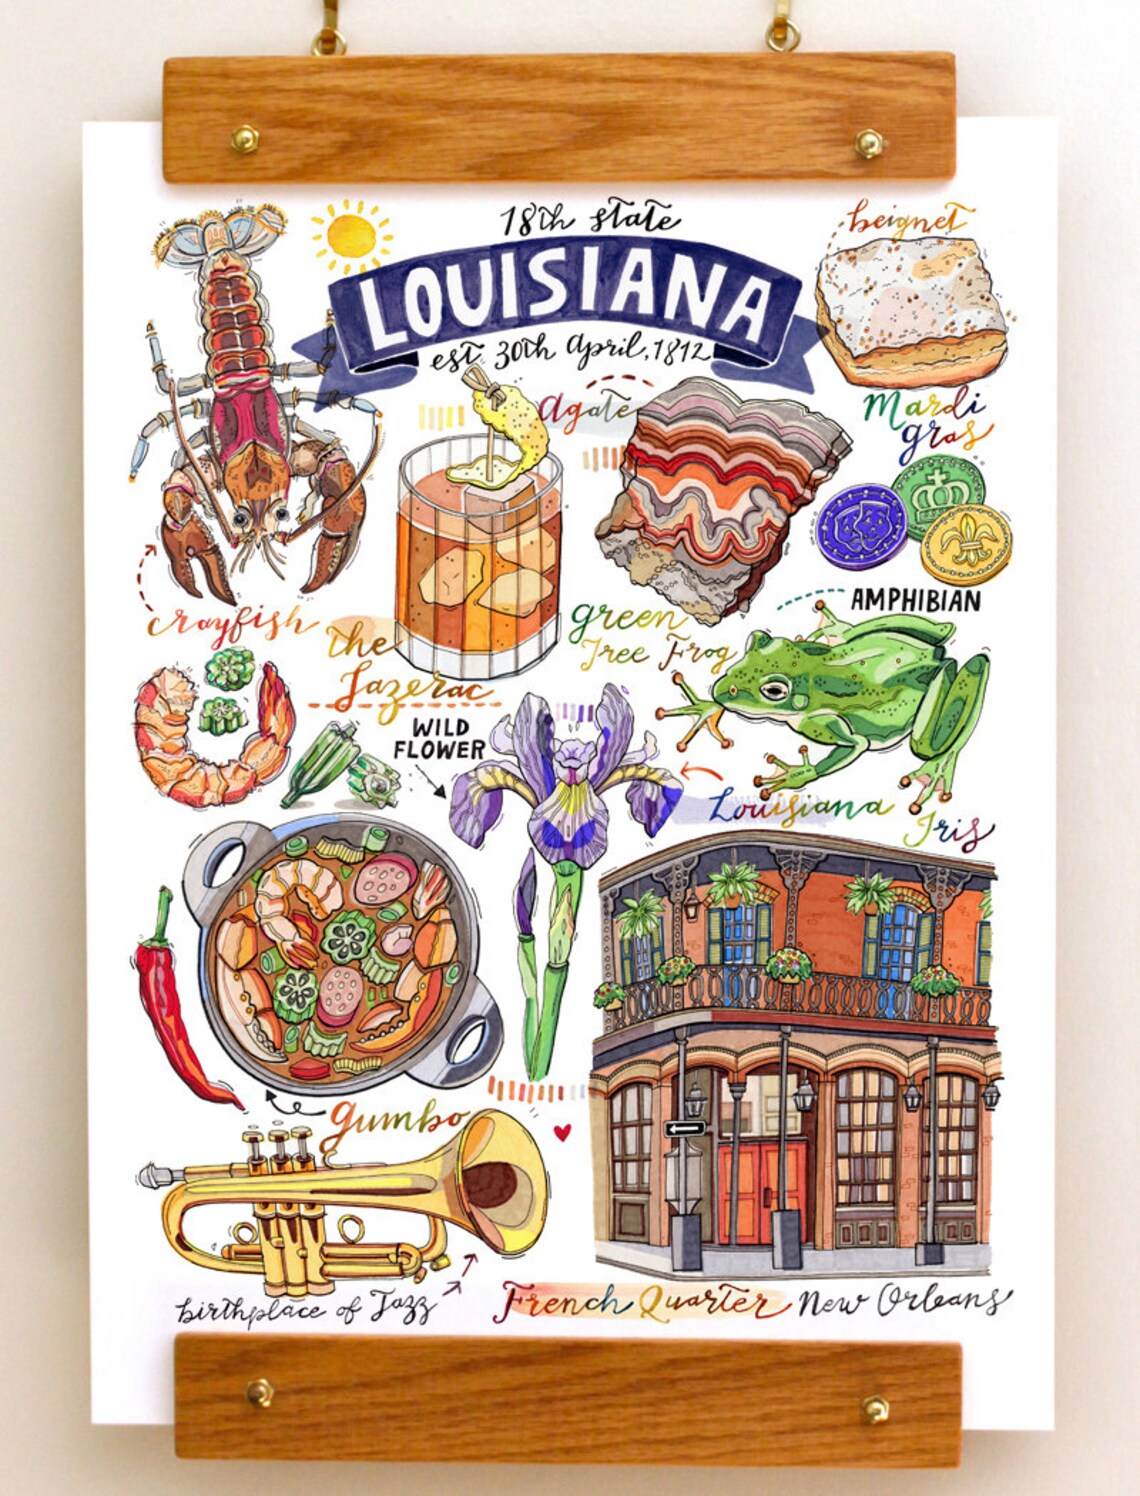 18th state
LOUISIANA
est. 30th April, 1812
beignet
Agate
Mardi
gras
crayfish
the
Sazerac
green
Tree Frog
AMPHIBIAN
WILD
FLOWER
Louisiana
Iris
gumbo
birthplace of Jazz
French Quarter New Orleans